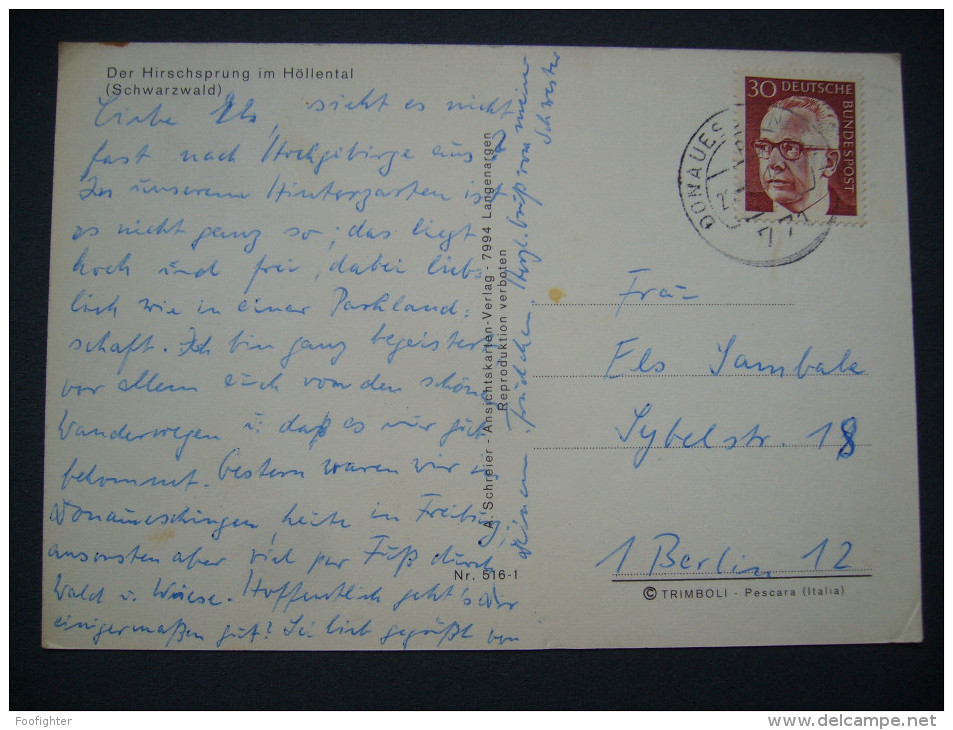 Der Hirschsprung im Höllental
(Schwarzwald)
Liebe Els, sieht es nicht
fast nach Hochgebirge aus?
In unserem Hinterzarten ist
es nicht ganz so; das liegt
hoch und frei, dabei lieb-
lich wie in einer Parkland-
schaft. Ich bin ganz begeistert
vor allem auch von den schönen
Wanderwegen u. daß es mir gut
bekommt. Gestern waren wir in
Donaueschingen, heute in Freiburg,
ansonsten aber viel per Fuß durch
Wald u. Wiese. Hoffentlich geht's Dir
einigermaßen gut? Sei lieb gegrüßt von
Deinem Trudchen. Herzl. Gruß von meiner
Schwester
A. Schreier - Ansichtskarten-Verlag - 7994 Langenargen
Reproduktion verboten
Nr. 516-1
30 DEUTSCHE BUNDESPOST
DONAUES
Frau
Els Sambale
Sybelstr. 18
1 Berlin 12
© TRIMBOLI - Pescara (Italia)
Foofighter
www.delcampe.net